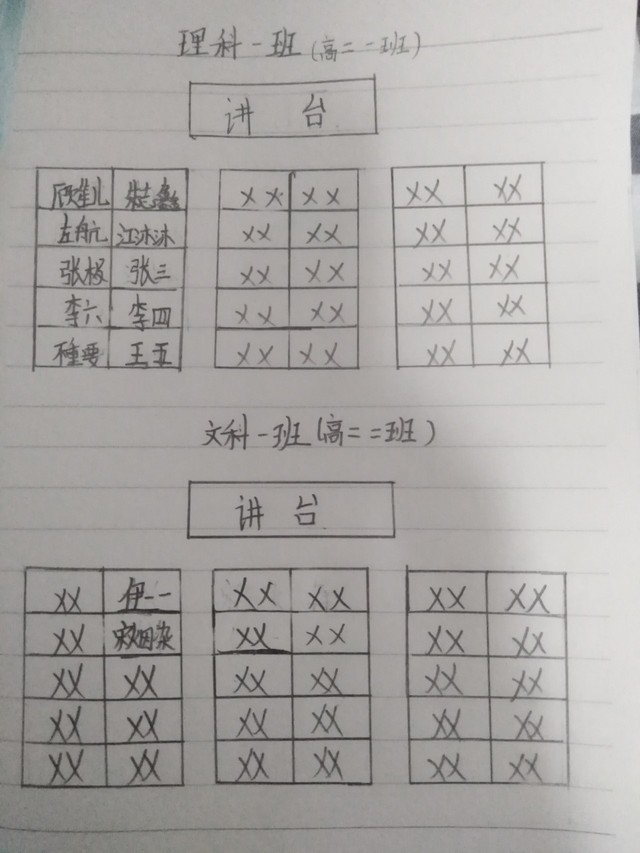 理科一班(高二一班)
讲 台
XX XX XX XX
左航 江沐沐 XX XX XX XX
张极 张三 XX XX XX XX
李六 李四 XX XX XX XX
王五 XX XX XX XX
文科一班(高二二班)
讲 台
XX 伊一 XX XX XX XX
XX XX XX XX XX
XX XX XX XX XX XX
XX XX XX XX XX XX
XX XX XX XX XX XX